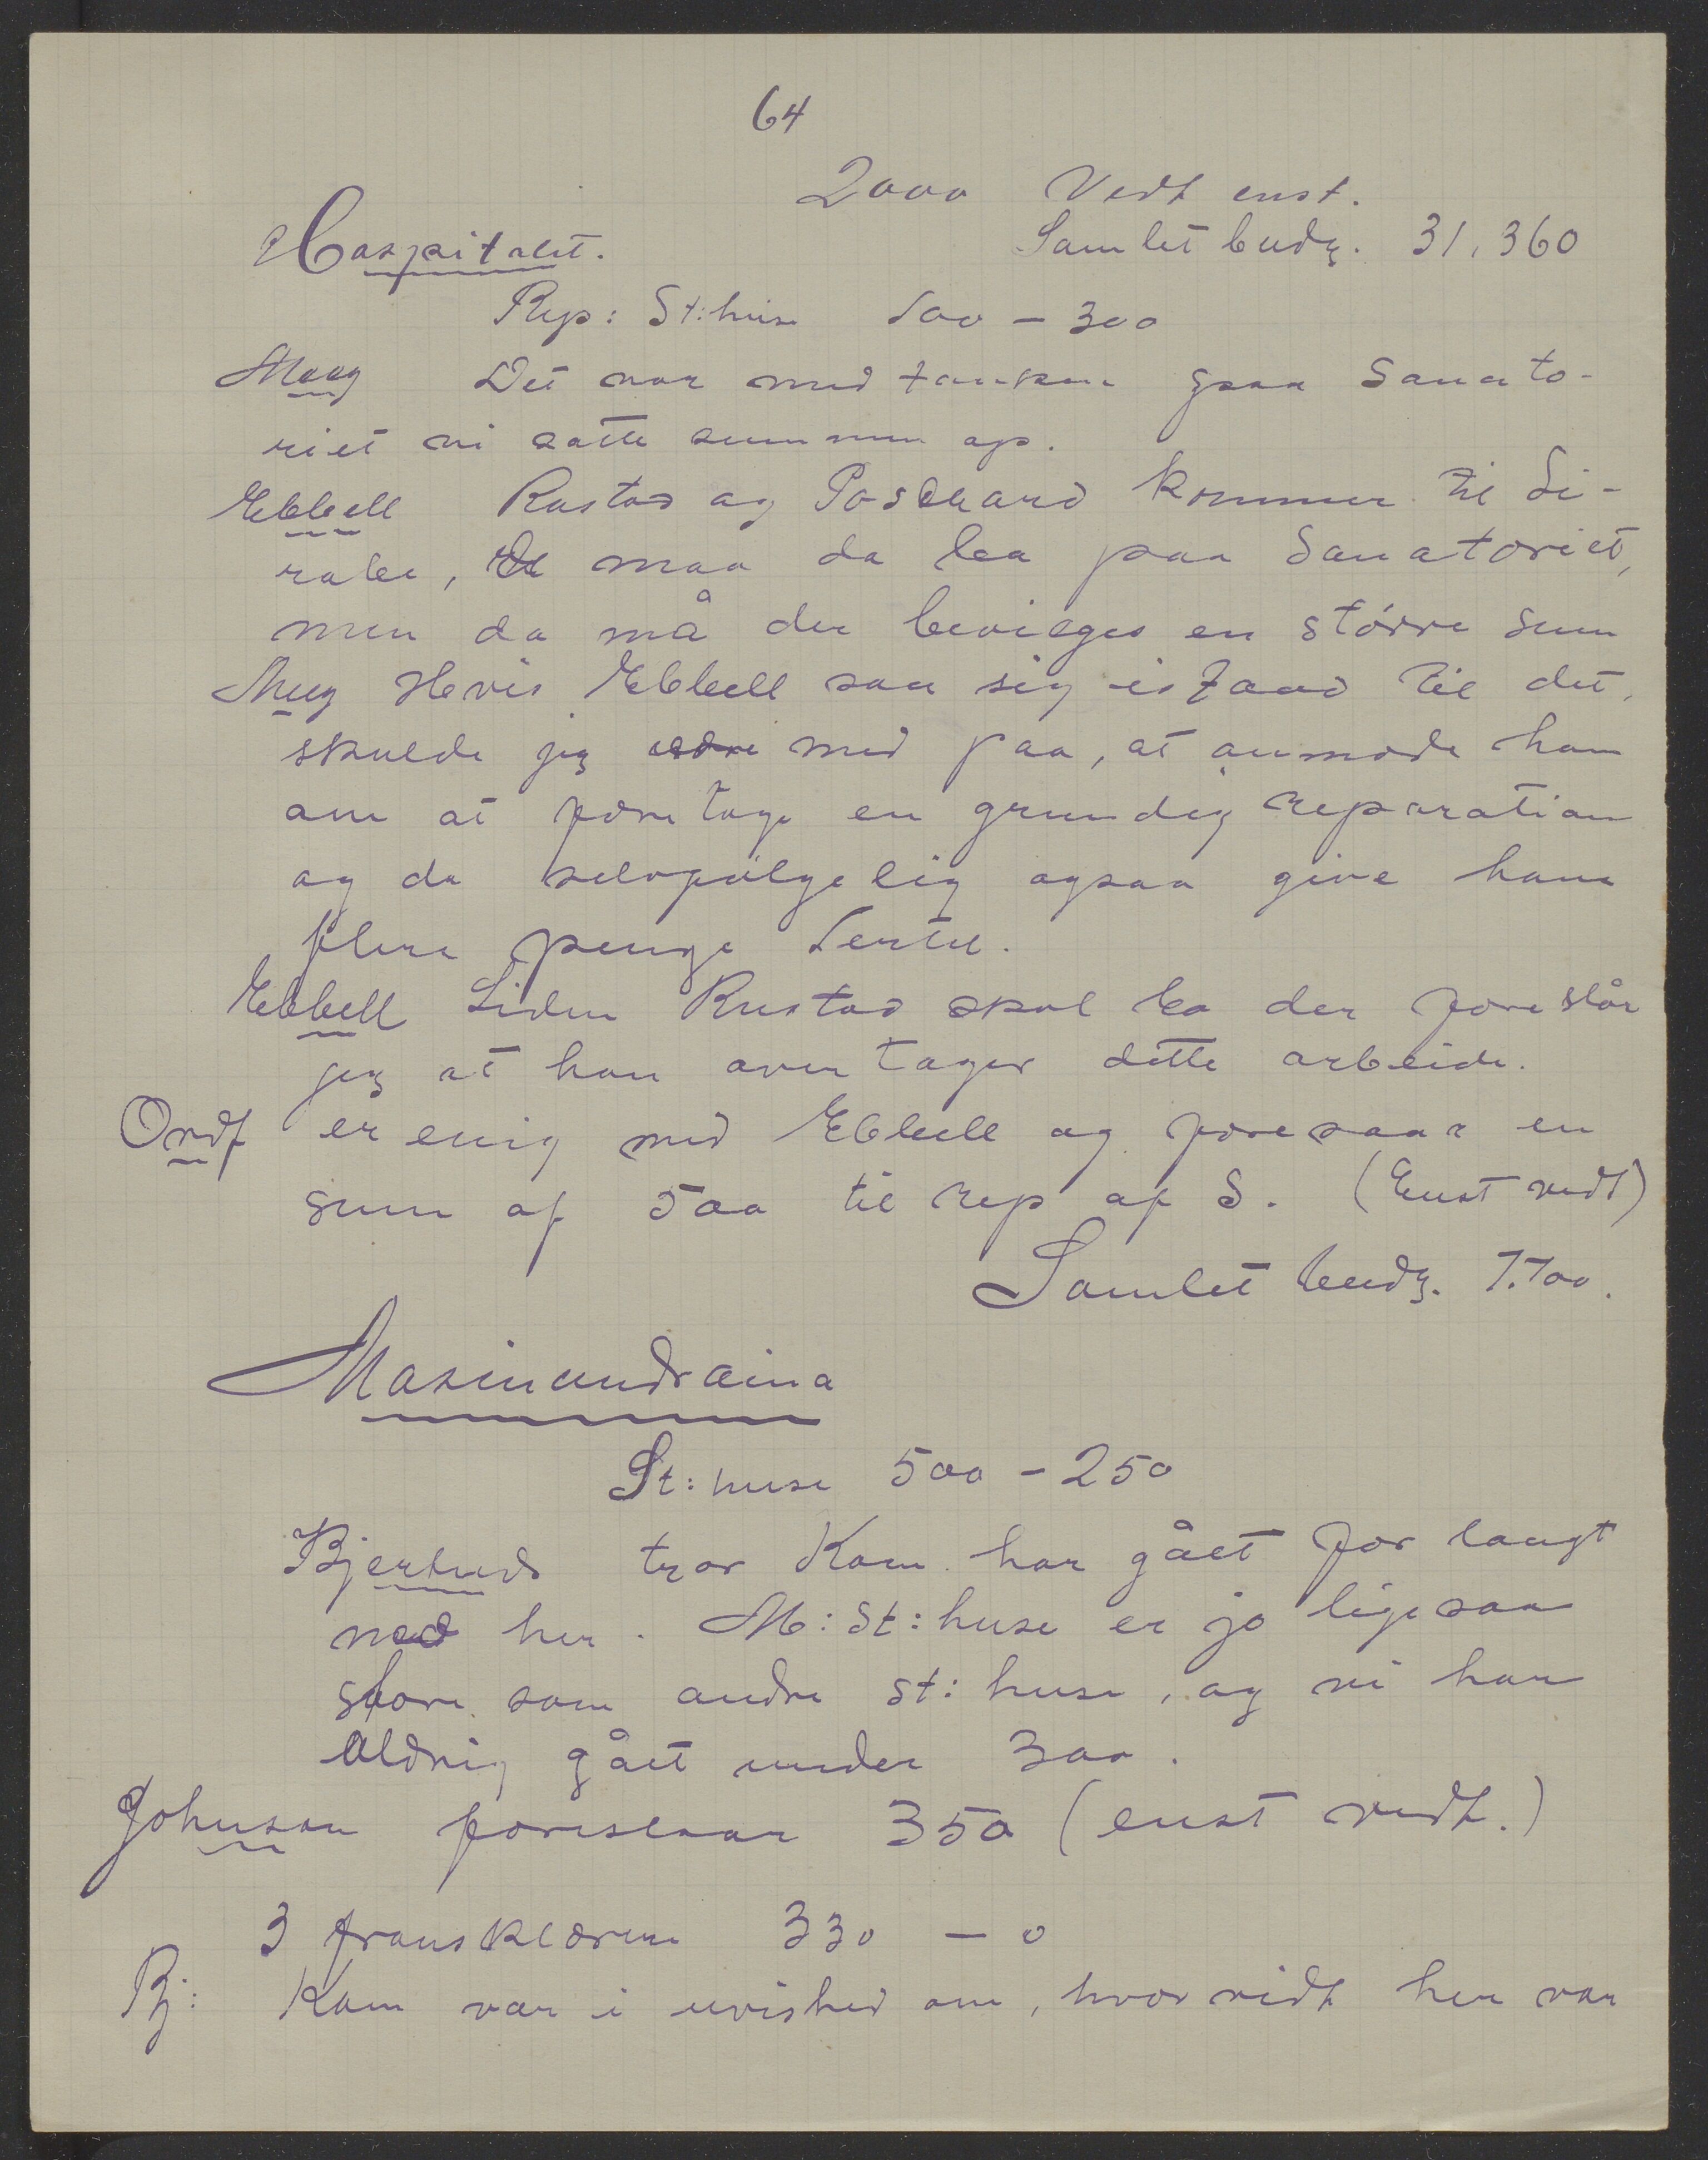 64
2000 Vedt enst.
Hospitalet. Samlet budg. 31,360
Rep: St:huse 500 – 300
Meeg Det var med tanken paa Sanato-
riet vi satte summen op.
Ebbell Rustad og Poschard kommer til Si-
rabe, De maa da bo paa Sanatoriet,
men da må der bevilges en större sum
Meeg Hvis Ebbell saa sig istand til det,
skulde jeg være med paa, at anmode ham
om at foretage en grundig reparation
og da selvfølgelig ogsaa give ham
flere penge dertil.
Ebbell Siden Rustad skal bo der foreslår
jeg at han overtager dette arbeide.
Ordf er enig med Ebbell og foresaar en
sum af 500 til rep af S. (Enst vedt)
Samlet budg. 7.700.
Masinandraina
St:huse 500 – 250
Bjertnæs tror Kom. har gået for langt
ned her. M:St:huse er jo ligesaa
store som andre st:huse, og vi har
Aldrig gået under 300.
Johnson foreslaar 350 (enst vedt.)
3 fransklærere 330 – 0
Bj: Kom var i uvished om, hvorvidt her var